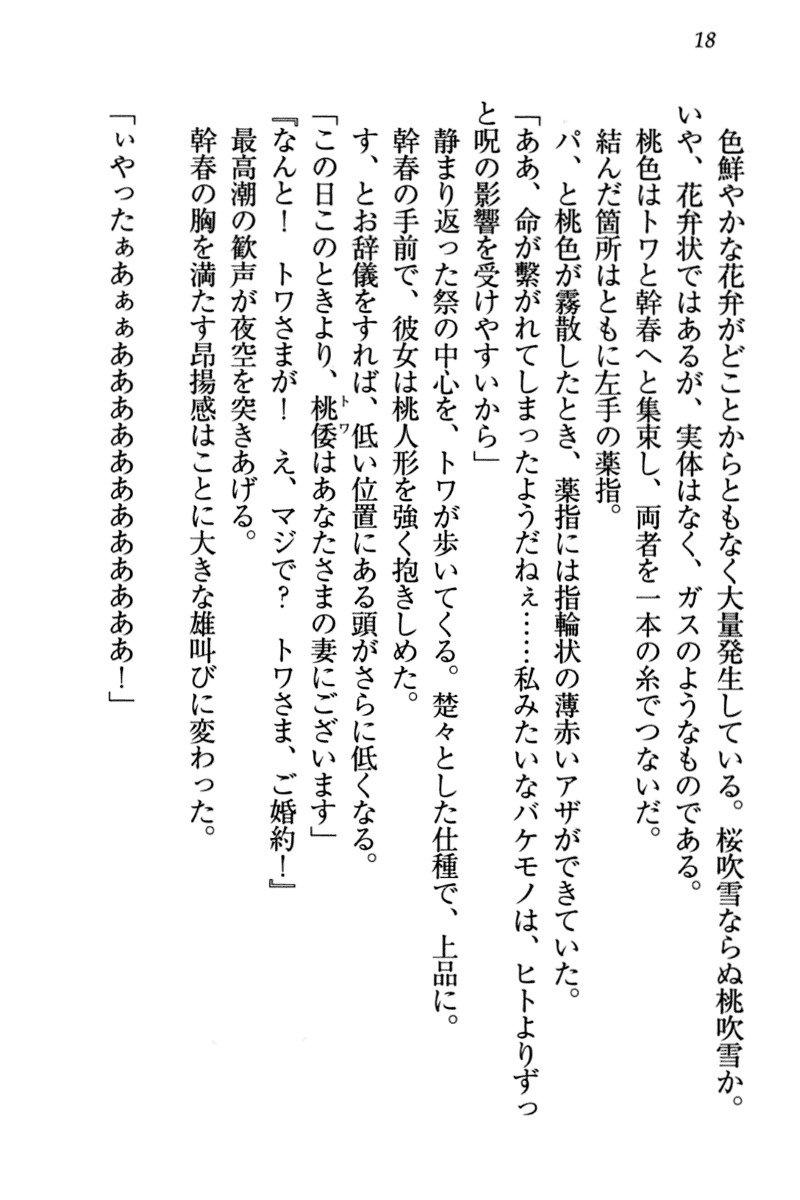 18
色鮮やかな花弁がどことからともなく大量発生している。桜吹雪ならぬ桃吹雪か。
いや、花弁状ではあるが、実体はなく、ガスのようなものである。
桃色はトワと幹春へと集束し、両者を一本の糸でつないだ。
結んだ箇所はともに左手の薬指。
パ、と桃色が霧散したとき、薬指には指輪状の薄赤いアザができていた。
「ああ、命が繋がれてしまったようだねぇ……私みたいなバケモノは、ヒトよりずっ
と呪の影響を受けやすいから」
静まり返った祭の中心を、トワが歩いてくる。楚々とした仕種で、上品に。
幹春の手前で、彼女は桃人形を強く抱きしめた。
す、とお辞儀をすれば、低い位置にある頭がさらに低くなる。
「この日このときより、桃倭はあなたさまの妻にございます」
トワ
『なんと！　トワさまが！　え、マジで？　トワさま、ご婚約！』
最高潮の歓声が夜空を突きあげる。
幹春の胸を満たす昂揚感はことに大きな雄叫びに変わった。
「ぃやったぁあぁぁああああああああああああ！」